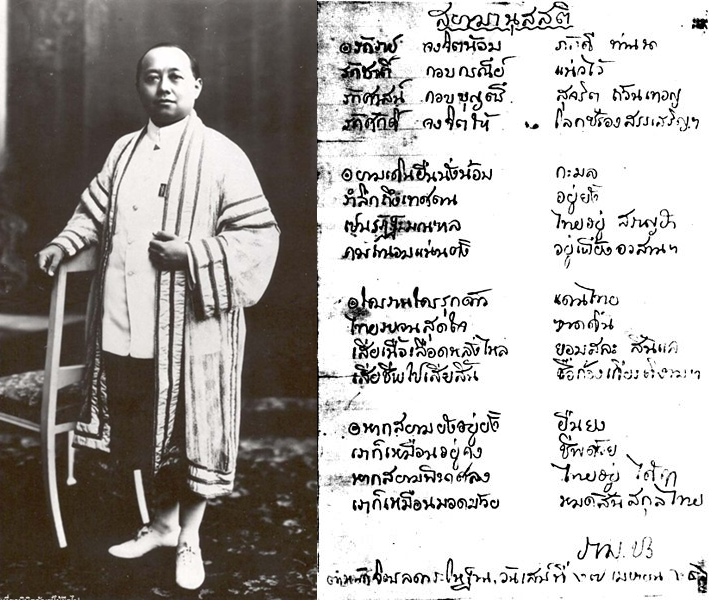 สยามานุสสติ
๏ รักราช จงจิตน้อม ภักดี ท่านนา
รักชาติ กอบกรณีย์ แน่วไว้
รักศาสน์ กอบบุญตรี สุจริต ถ้วนเทอญ
รักศักดิ์ จงจิตให้ โลกซ้องสรรเสริญฯ
๏ ยามเดินยืนนั่งน้อม กะมล
รำลึกถึงเทศตน อยู่ยั้ง
เป็นรัฏฐะมณฑล ไทยอยู่ สราญฮา
ควรถนอมแน่นตั้ง อยู่เพี้ยงอวสานฯ
๏ ใครรานใครรุกด้าว แดนไทย
ไทยรบจนสุดใจ ขาดดิ้น
เสียเนื้อเลือดหลั่งไหล ยอมสละ สิ้นแล
เสียชีพไป่เสียสิ้น ชื่อก้องเกียรติงามฯ
๏ หากสยามยังอยู่ยั้ง ยืนยง
เราก็เหมือนอยู่คง ชีพด้วย
หากสยามพินาศลง ไทยอยู่ ได้ฤา
เราก็เหมือนมอดม้วย หมดสิ้นสกุลไทย
ราม.ปร
วันเสาร์ที่ ๒๗ เมษายน